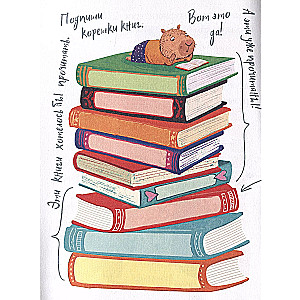 Подпиши
корешки книг.
Вот это
да!
А эти уже прочитаны!!
Эти книги хотелось бы прочитать.